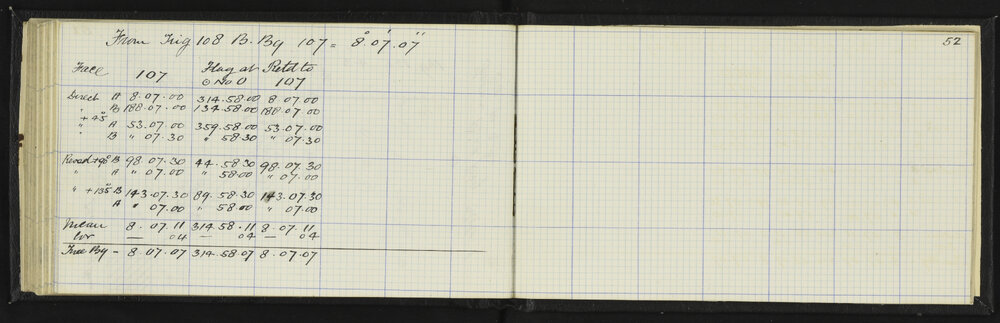 From Trig 108 B. Bg 107 = 8°.07'.07"
52
Face 107 Flag at Retd to
⊙ No 0 107
Direct A 8.07.00 314.58.00 8.07.00
" B 188.07.00 134.58.00 188.07.00
+45°
" A 53.07.00 359.58.00 53.07.00
" B " 07.30 " 58.30 " 07.30
Revsd +90° B 98.07.30 44.58.30 98.07.30
" A " 07.00 " 58.00 " 07.00
" +135° B 143.07.30 89.58.30 143.07.30
A " 07.00 " 58.00 " 07.00
Mean 8.07.11 314.58.11 8.07.11
Cor — 04 — 04 — 04
True Bg - 8.07.07 314.58.07 8.07.07